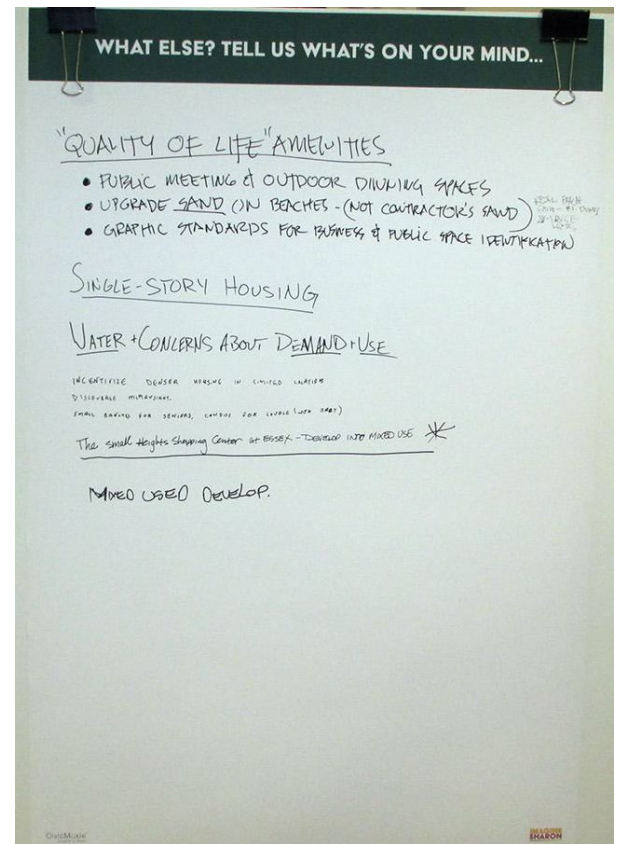 WHAT ELSE? TELL US WHAT'S ON YOUR MIND...
"QUALITY OF LIFE" AMENITIES
• PUBLIC MEETING & OUTDOOR DINNING SPACES
• UPGRADE SAND ON BEACHES - (NOT CONTRACTOR'S SAND)
• GRAPHIC STANDARDS FOR BUSINESS & PUBLIC SPACE IDENTIFICATION
SINGLE-STORY HOUSING
WATER + CONCERNS ABOUT DEMAND + USE
INCENTIVIZE DENSER HOUSING IN LIMITED LOCATIONS
DISCOURAGE MCMANSIONS.
SMALL FOR SENIORS, CONDOS FOR
The small Heights Shopping Center at ESSEX - DEVELOP INTO MIXED USE
MIXED USED DEVELOP.
CivicMoxie
IMAGINE
SHARON